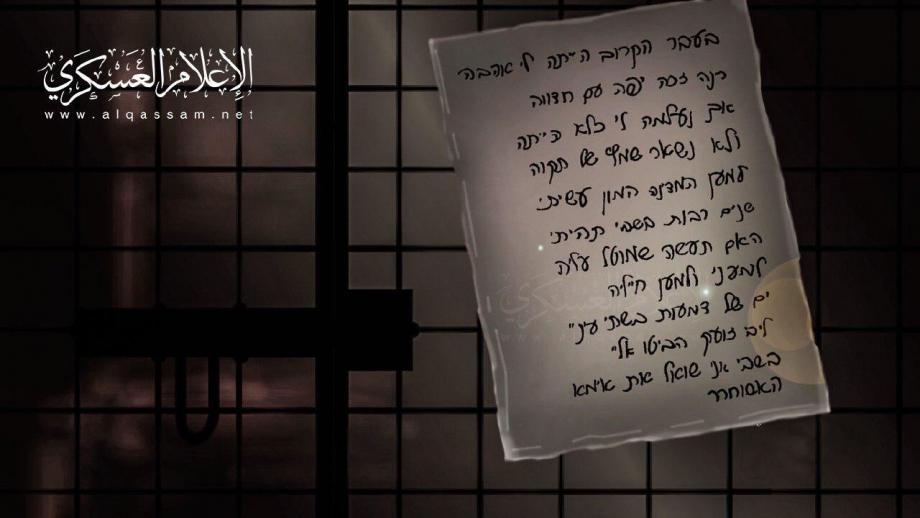 الإعلام العسكري
www.alqassam.net
בעבר הקרוב הייתה לי אהבה
רכה זכה יפה עם חדווה
אך נעלמה לי כלא הייתה
ולא נשאר שמץ של תקוה
למען המדינה המון עשיתי
שנים רבות בשבי תהיתי
האם תעשה שמוטל עליה
למעני ולמען חייליה
ים של דמעות בשתי עיני
ליבי זועק הביטו אלי
בשבי אני שואל את אימא
האסוחרר
الإعلام العسكري